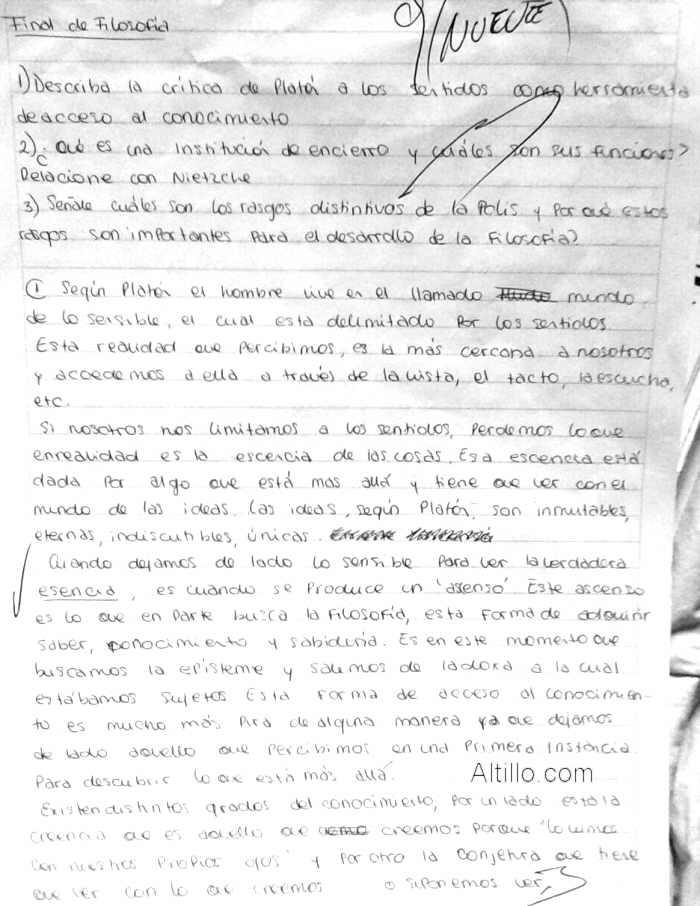 Final de Filosofía
9 (NUEVE)
1) Describa la crítica de Platón a los sentidos como herramienta
de acceso al conocimiento
2) ¿Qué es una institución de encierro y cuáles son sus funciones?
Relacione con Nietzche
3) Señale cuáles son los rasgos distintivos de la Polis y por qué estos
rasgos son importantes para el desarrollo de la Filosofía?
① Según Platón el hombre vive en el llamado mundo
de lo sensible, el cual esta delimitado por los sentidos.
Esta realidad que percibimos, es la más cercana a nosotros
y accedemos a ella a través de la vista, el tacto, la escucha,
etc.
Si nosotros nos limitamos a los sentidos, perdemos lo que
enrealidad es la escencia de las cosas. Esa escencia está
dada por algo que está mas allá y tiene que ver con el
mundo de las ideas. Las ideas, según Platón, son inmutables,
eternas, indiscutibles, únicas.
Cuando dejamos de lado lo sensible para ver la verdadera
esencia, es cuando se produce un 'asenso'. Este ascenso
es lo que en parte busca la filosofía, esta forma de adquirir
saber, conocimiento y sabiduría. Es en este momento que
buscamos la episteme y salimos de la doxa a la cual
estábamos sujetos. Esta forma de acceso al conocimien-
to es mucho más pura de alguna manera ya que dejamos
de lado aquello que percibimos en una primera instancia
para descubrir lo que está más allá.
Altillo.com
Existen distintos grados del conocimiento, por un lado esta la
creencia que es aquello que creemos porque "lo vimos
con nuestros propios ojos" y por otro la conjetura que tiene
que ver con lo que creemos o suponemos ver,